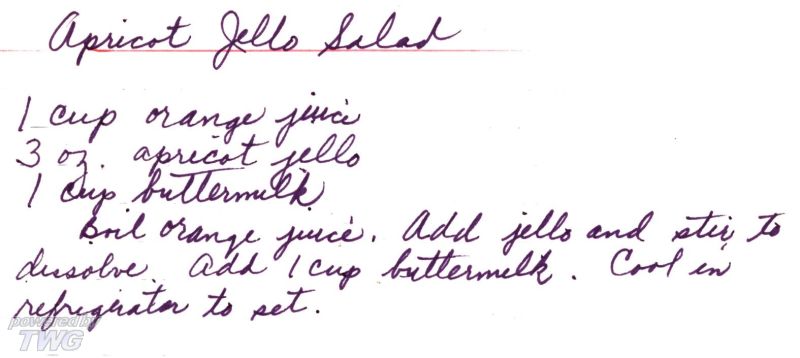 Apricot Jello Salad
1 cup orange juice
3 oz. apricot jello
1 cup buttermilk
Boil orange juice. Add jello and stir to
dissolve. Add 1 cup buttermilk. Cool in
refrigerator to set.
powered by
TWG